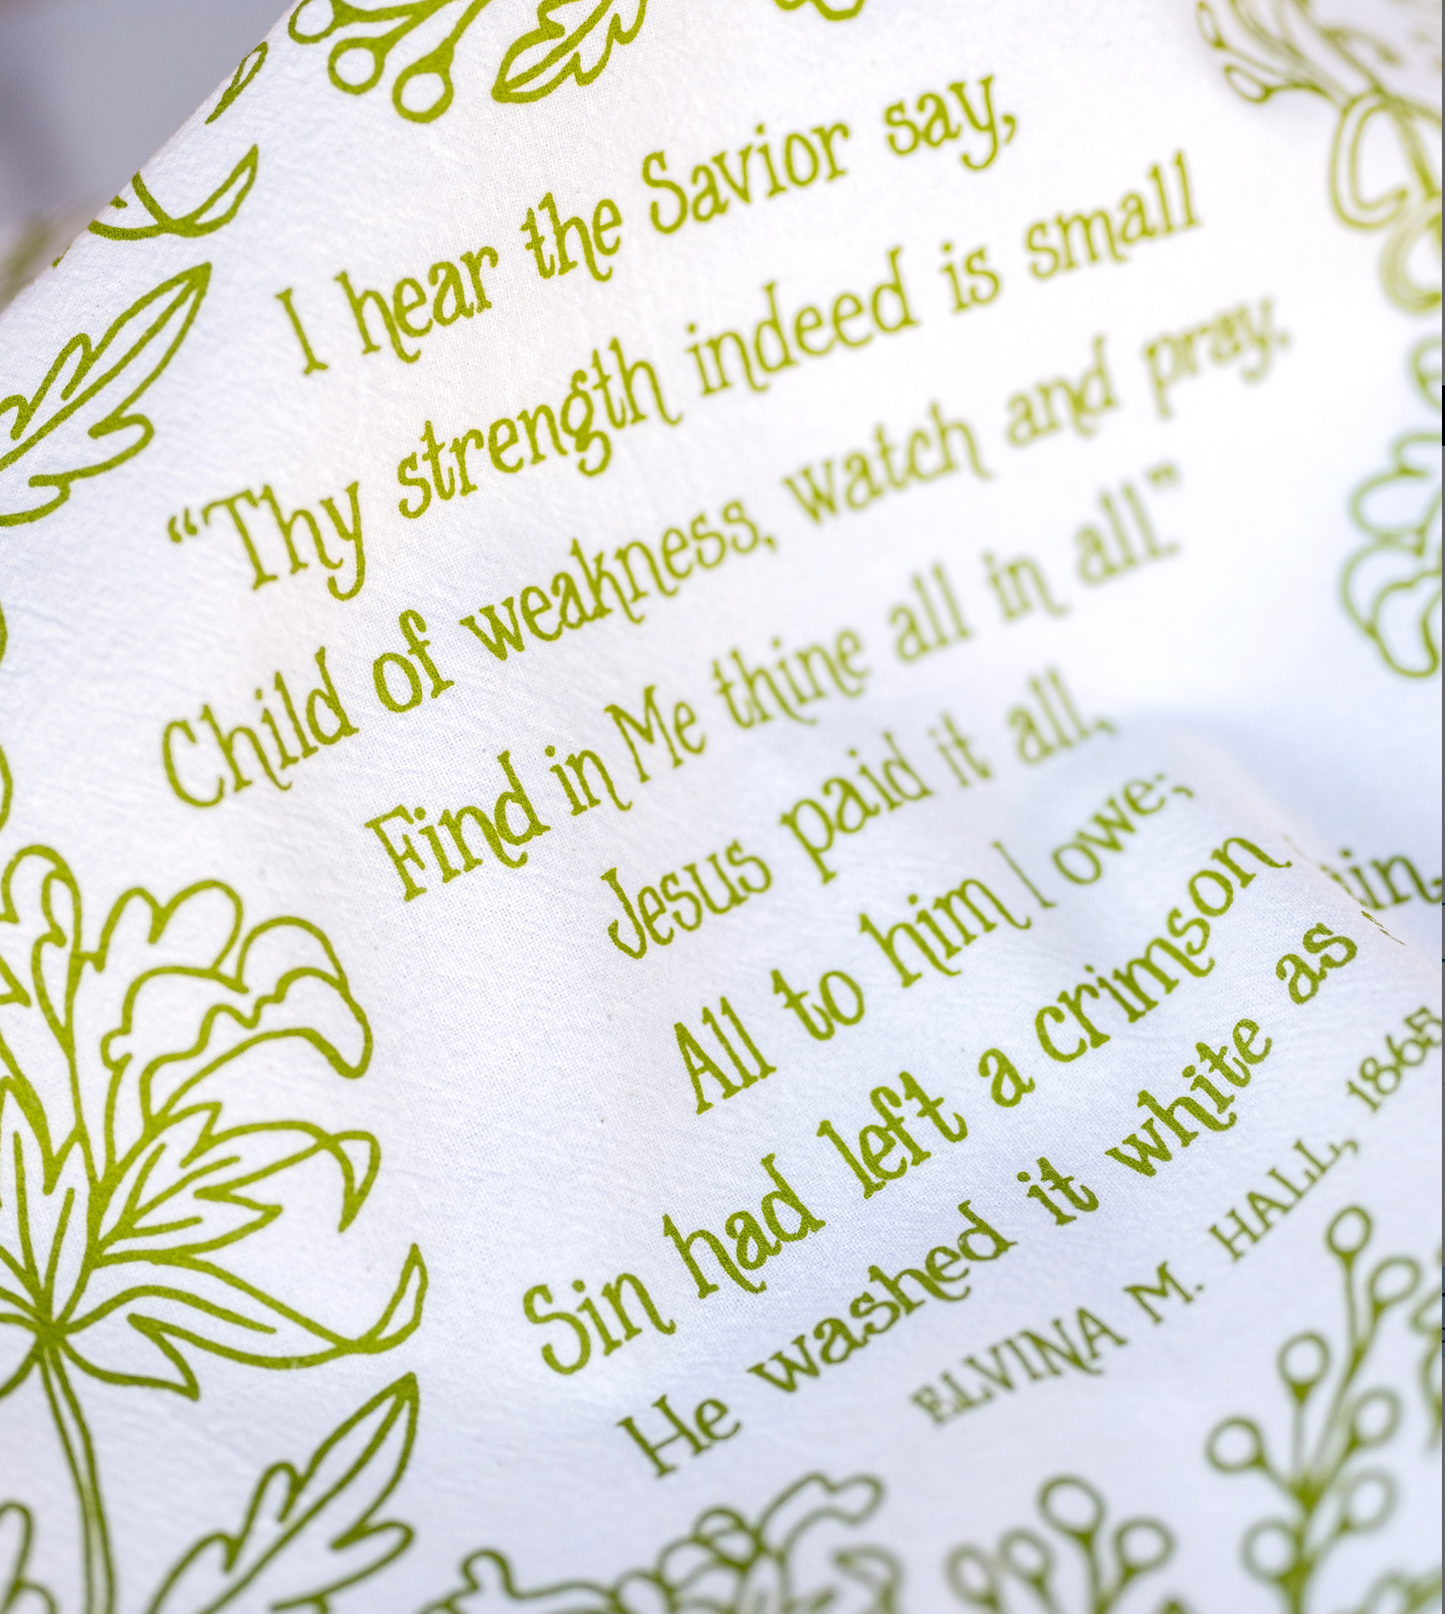 I hear the Savior say,
“Thy strength indeed is small
Child of weakness, watch and pray,
Find in Me thine all in all.”
Jesus paid it all,
All to him I owe;
Sin had left a crimson
He washed it white as
ELVINA M. HALL, 1865